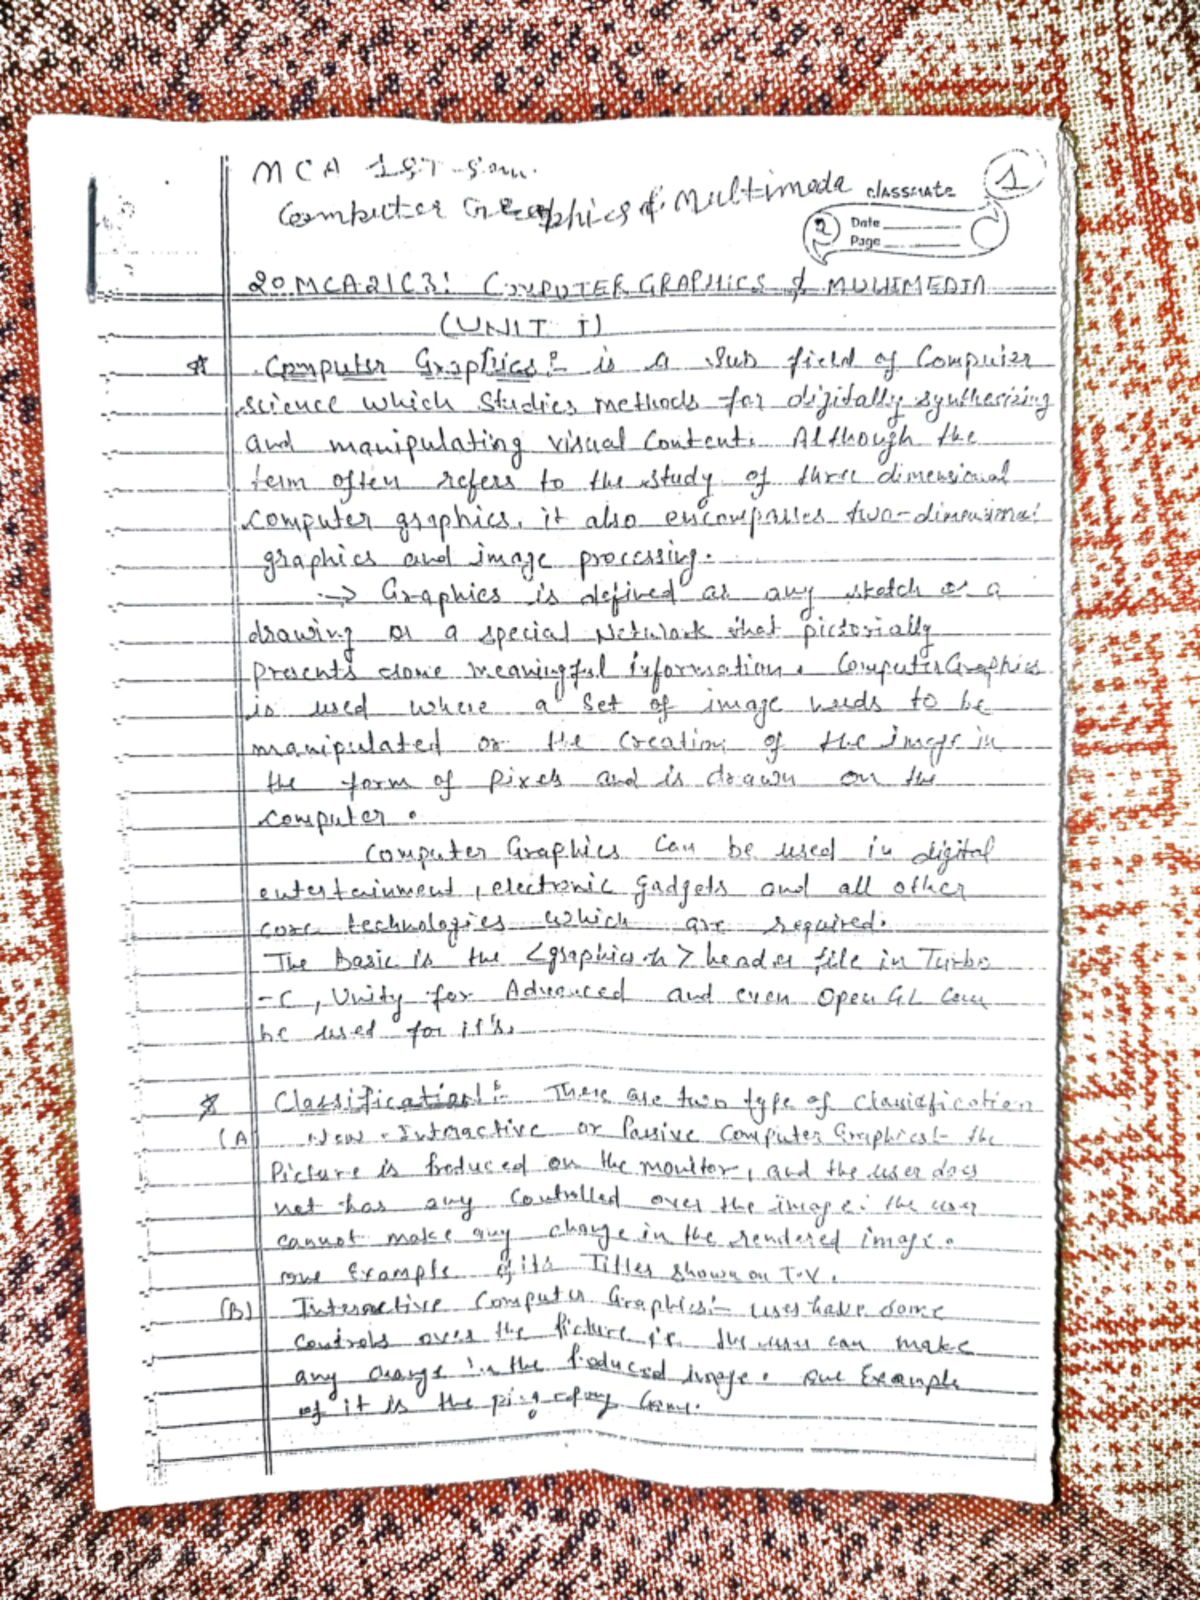 MCA 1ST - Sem.
Computer Graphics & Multimeda classmate 1
2 Date
Page
20MCA21C3: COMPUTER GRAPHICS & MULTIMEDIA
(UNIT I)
Computer Graphics:- is a Sub field of Computer
science which Studies methods for digitally synthesizing
and manipulating visual Content. Although the
term often refers to the study of three dimensional
computer graphics, it also encompasses two-dimensional
graphics and image processing.
-> Graphics is defined as any sketch or a
drawing or a special Network that pictorially
presents some meaningful information. Computer Graphics
is used where a set of image needs to be
manipulated or the creation of the image in
the form of pixels and is drawn on the
computer.
Computer Graphics Can be used in digital
entertainment, electronic gadgets and all other
core technologies which are required.
The Basic is the <graphics.h> header file in Turbo
-C, Unity for Advanced and even OpenGL can
be used for it's.
Classification:- There are two type of classification
(A) Non-Interactive or Passive Computer Graphics:- the
Picture is produced on the monitor, and the user does
not has any Controlled over the image. the user
cannot make any change in the rendered image.
one Example of its Titles shown on T.V.
(B) Interactive Computer Graphics:- uses have some
Controls over the picture i.e. the user can make
any change in the produced image. one Example
of it is the game.